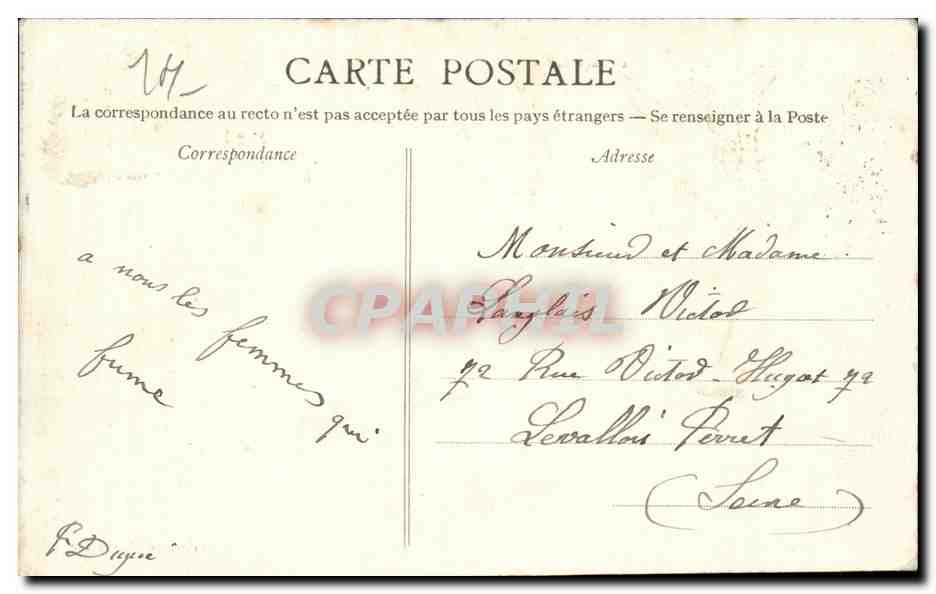 CARTE POSTALE
La correspondance au recto n'est pas acceptée par tous les pays étrangers — Se renseigner à la Poste
Correspondance
a nous les femmes qui
fume
Adresse
Monsieur et Madame
Langlais Victor
72 Rue Victor Hugot 72
Levallois Perret
(Seine)
CPAPHIL